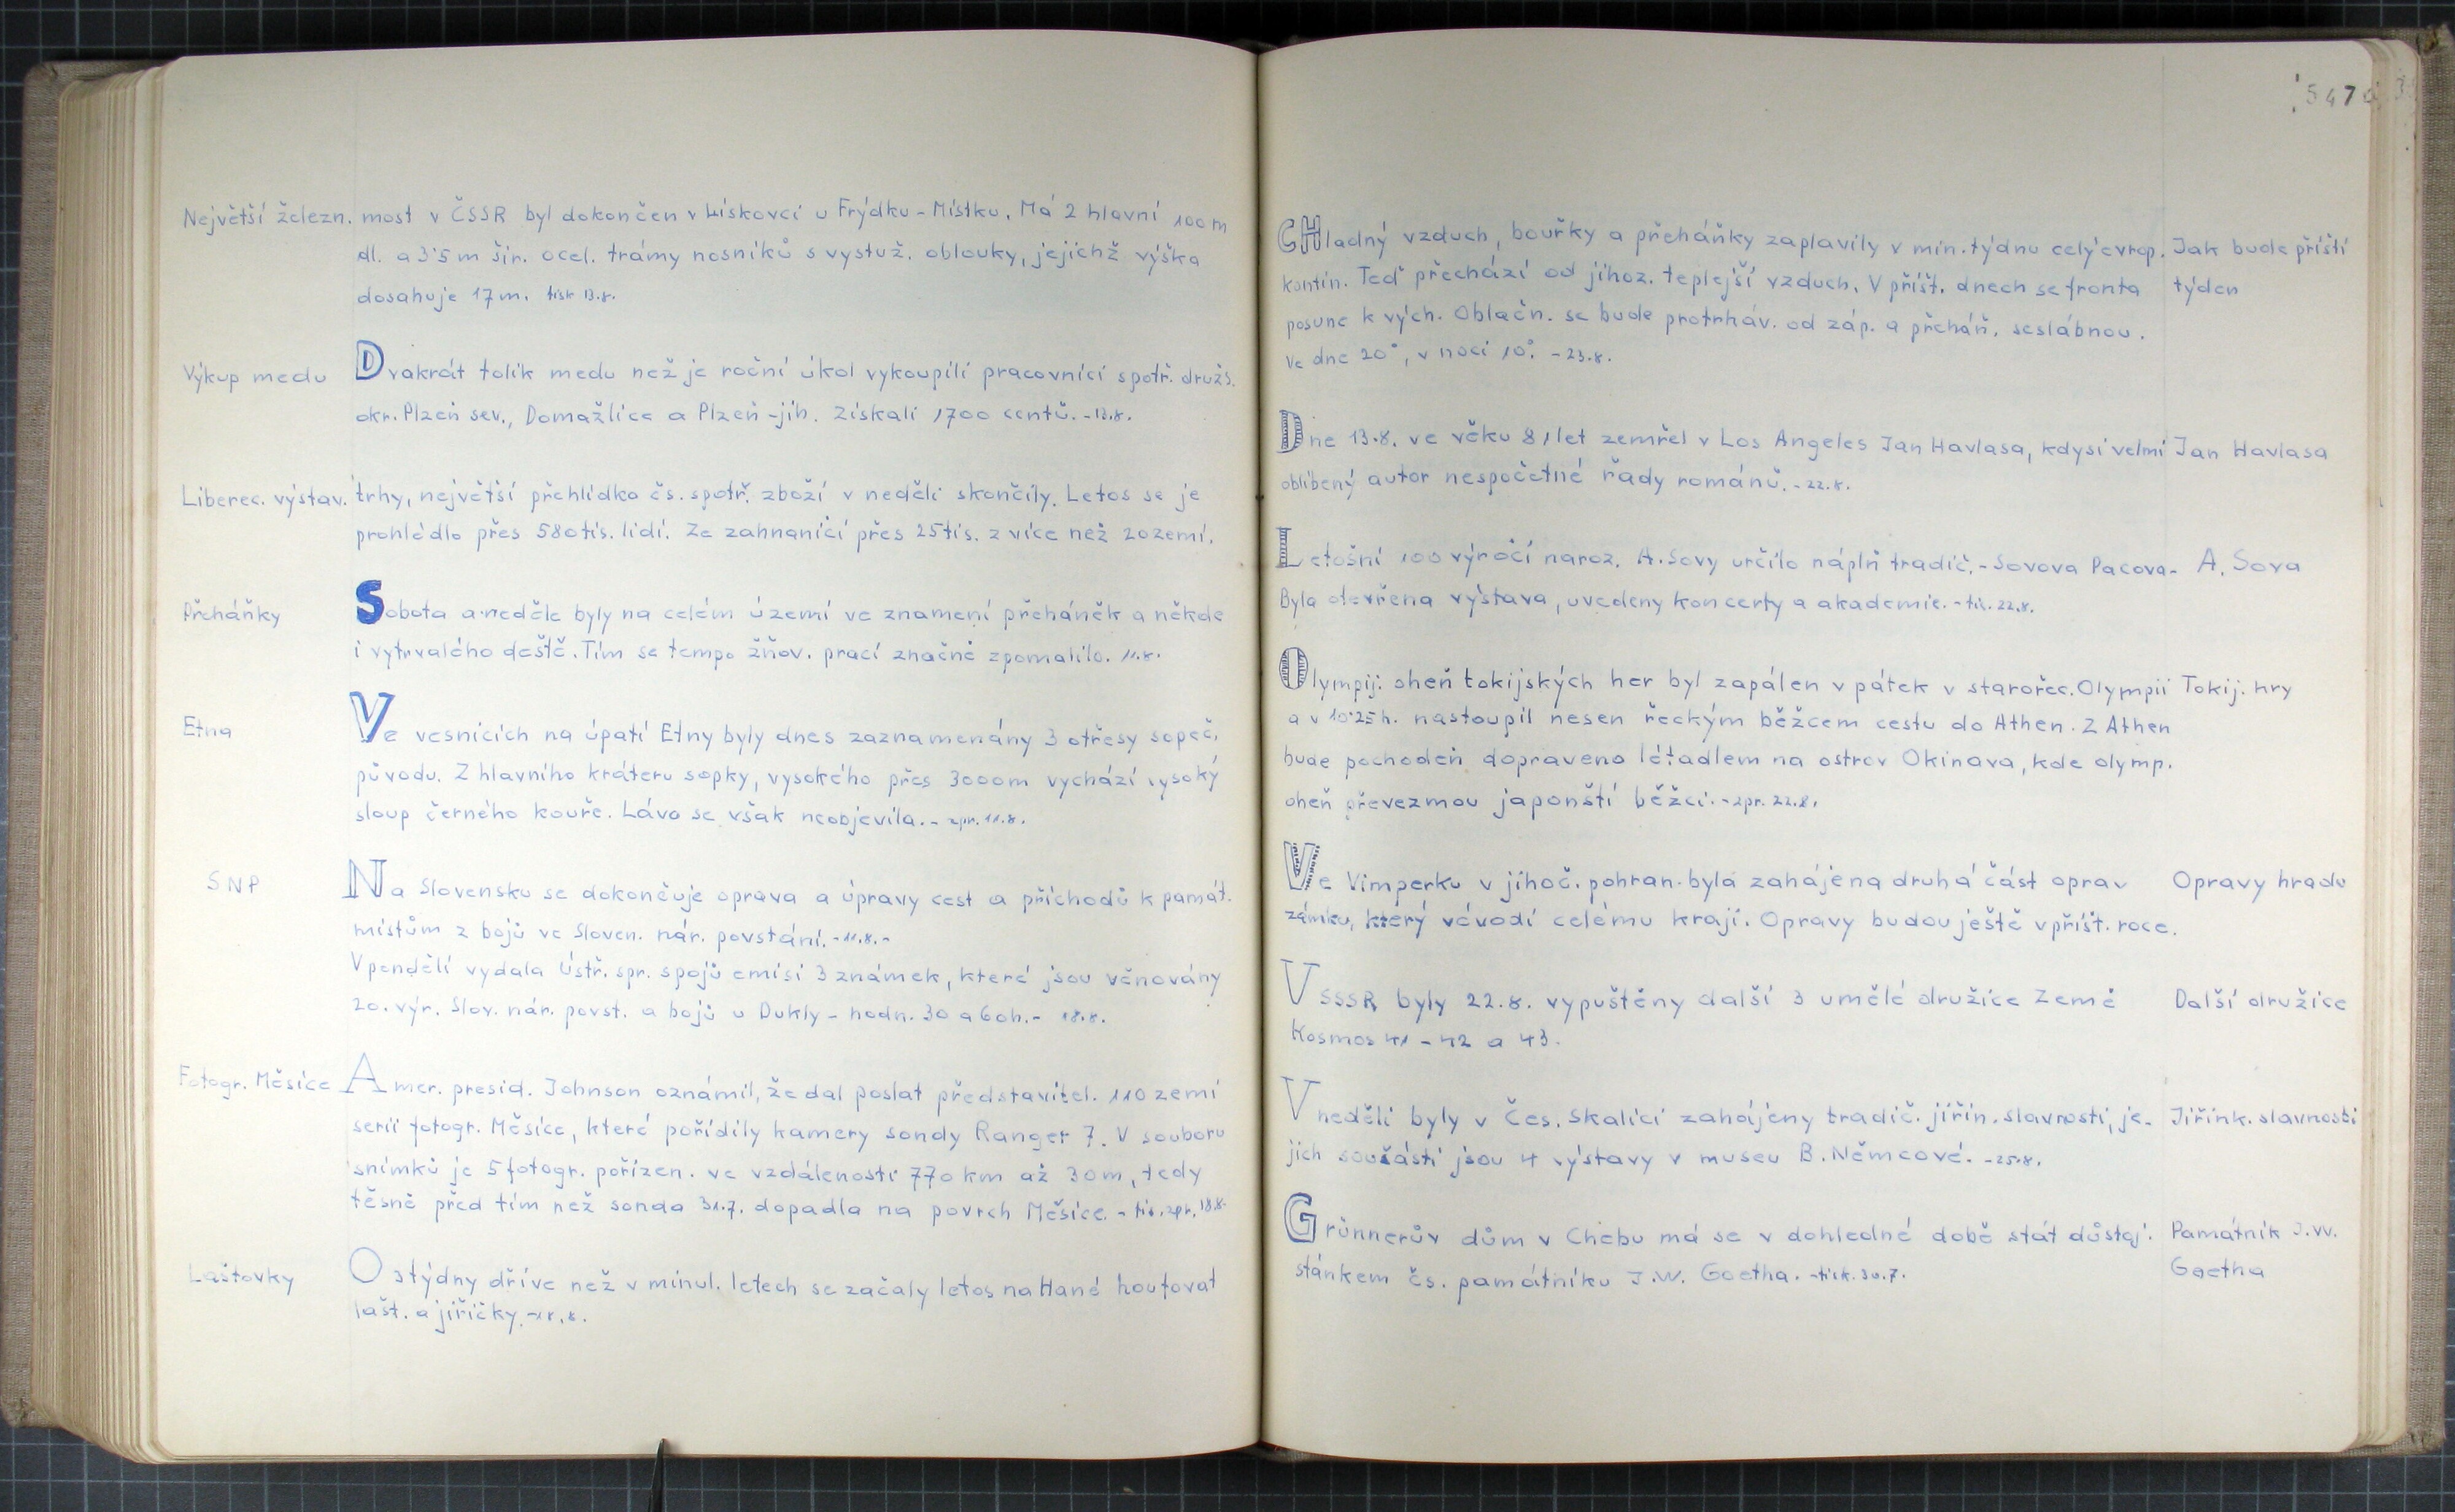 Největší železn. most v ČSSR byl dokončen v Liskovci u Frýdku - Místku. Má 2 hlavní 100 m
dl. a 3'5 m šir. ocel. trámy nosníků s vystuž. oblouky, jejichž výška
dosahuje 17 m. tisk 13.8.
Výkup medu Dvakrát tolik medu než je roční úkol vykoupili pracovníci spotř. družs.
okr. Plzeň sev., Domažlice a Plzeň - jih. Získali 1700 centů. - 13.8.
Liberec. výstav. trhy, největší přehlídka čs. spotř. zboží v neděli skončily. Letos se je
prohlédlo přes 580 tis. lidí. Ze zahraničí přes 25 tis. z více než 20 zemí.
Přeháňky Sobota a neděle byly na celém území ve znamení přeháněk a někde
i vytrvalého deště. Tím se tempo žňov. prací značně zpomalilo. 11.8.
Etna Ve vesnicích na úpatí Etny byly dnes zaznamenány 3 otřesy sopeč.
původu. Z hlavního kráteru sopky, vysokého přes 3000 m vychází vysoký
sloup černého kouře. Láva se však neobjevila. - zpr. 11.8.
SNP Na Slovensku se dokončuje oprava a úpravy cest a příchodů k památ.
místům z bojů ve Sloven. nár. povstání. - 11.8. -
V pondělí vydala Ústř. spr. spojů emisi 3 známek, které jsou věnovány
20. výr. Slov. nár. povst. a bojů u Dukly - hodn. 30 a 60 h. - 18.8.
Fotogr. Měsíce Amer. presid. Johnson oznámil, že dal poslat představitel. 110 zemí
serii fotogr. Měsíce, které pořídily kamery sondy Ranger 7. V souboru
snímků je 5 fotogr. pořízen. ve vzdálenosti 770 km až 30 m, tedy
těsně před tím než sonda 31.7. dopadla na povrch Měsíce. - tis. zpr. 18.8.
Laštovky O 3 týdny dříve než v minul. letech se začaly letos na Hané houfovat
lašt. a jiřičky. - 18.8.
5470
CHladný vzduch, bouřky a přeháňky zaplavily v min. týdnu celý evrop. Jak bude příští
kontin. Teď přechází od jihoz. teplejší vzduch. V příšt. dnech se fronta týden
posune k vých. Oblačn. se bude protrháv. od záp. a přeháň. seslábnou.
Ve dne 20°, v noci 10°. - 23.8.
Dne 13.8. ve věku 81 let zemřel v Los Angeles Jan Havlasa, kdysi velmi Jan Havlasa
oblíbený autor nespočetné řady románů. - 22.8.
Letošní 100 výročí naroz. A. Sovy určilo náplň tradič. - Sovova Pacova - A. Sova
Byla otevřena výstava, uvedeny koncerty a akademie. - tis. 22.8.
Olympij. oheň tokijských her byl zapálen v pátek v starořec. Olympii Tokij. hry
a v 10'25 h. nastoupil nesen řeckým běžcem cestu do Athen. Z Athen
bude pochodeň dopravena létadlem na ostrov Okinava, kde olymp.
oheň převezmou japonští běžci. - zpr. 22.8.
Ve Vimperku v jihoč. pohran. byla zahájena druhá část oprav Opravy hradu
zámku, který vévodí celému kraji. Opravy budou ještě v příšt. roce.
V SSSR byly 22.8. vypuštěny další 3 umělé družice Země Další družice
Kosmos 41 - 42 a 43.
V neděli byly v Čes. Skalici zahájeny tradič. jiřin. slavnosti, je- Jiřink. slavnosti
jich součástí jsou 4 výstavy v museu B. Němcové. - 25.8.
Grünnerův dům v Chebu má se v dohledné době stát důstoj. Památník J. W.
stánkem čs. památníku J. W. Goetha. - tisk. 30.7. Goetha